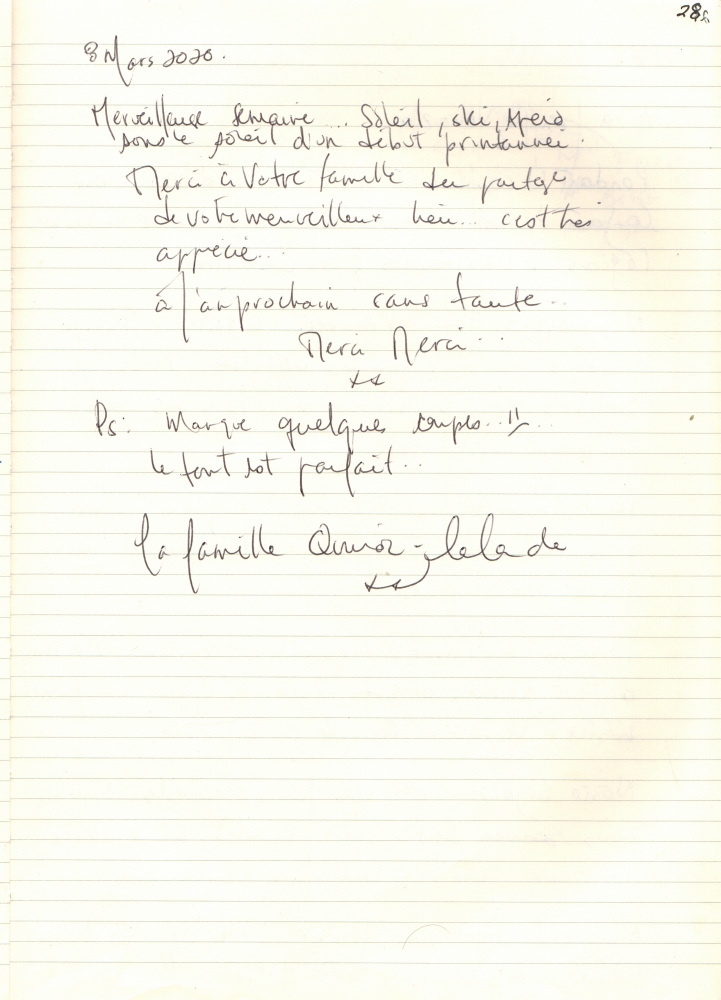 28
8 Mars 2020.
Merveilleuse semaine... Soleil, ski, apéro
sous le soleil d'un début printannier.
Merci à Votre famille du partage
de votre merveilleux lieu... c'est très
apprécié...
à l'an prochain sans faute...
Merci Merci...
xx
Ps: Manque quelques coupes..!!
le tout est parfait...
La famille
xx